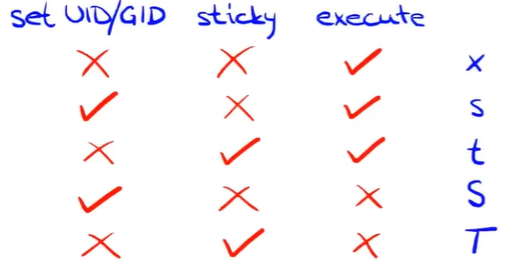 set UID/GID sticky execute
✗ ✗ ✓ x
✓ ✗ ✓ s
✗ ✓ ✓ t
✓ ✗ ✗ S
✗ ✓ ✗ T